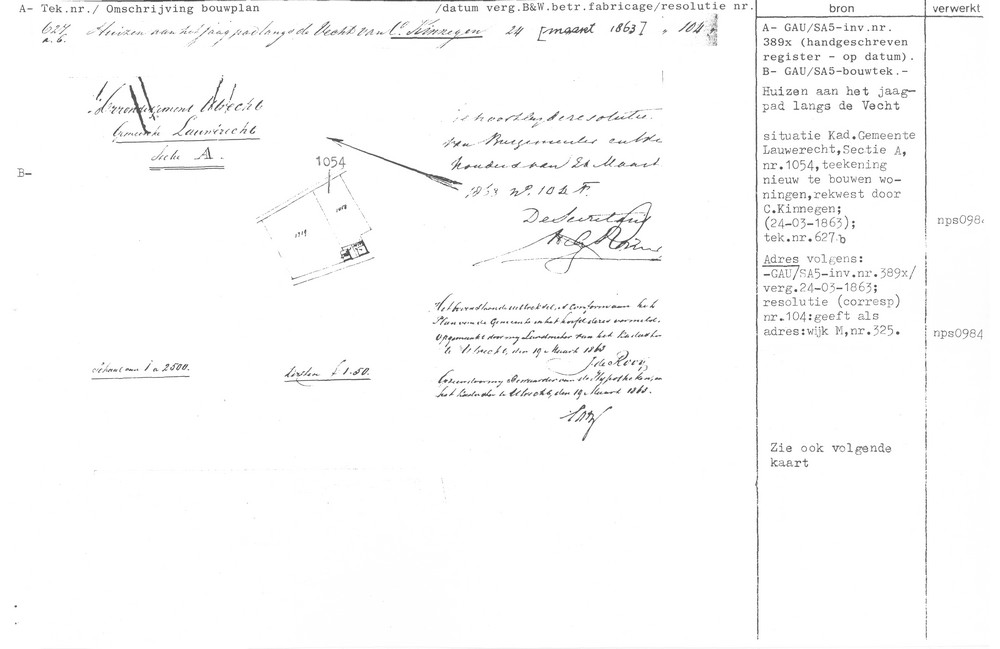 A- Tek.nr./ Omschrijving bouwplan /datum verg.B&W.betr.fabricage/resolutie nr.
bron
verwerkt
627 a.b. Huizen aan het jaagpad langs de Vecht van C. Kinnegen 24 [maart 1863] 104
A- GAU/SA5-inv.nr.
389x (handgeschreven
register - op datum).
B- GAU/SA5-bouwtek.-
Huizen aan het jaag-
pad langs de Vecht
situatie Kad.Gemeente
Lauwerecht,Sectie A,
nr.1054,teekening
nieuw te bouwen wo-
ningen,rekwest door
C.Kinnegen;
(24-03-1863);
tek.nr.627.b
nps098
Adres volgens:
-GAU/SA5-inv.nr.389x/
verg.24-03-1863;
resolutie (corresp)
nr.104:geeft als
adres:wijk M,nr.325.
nps0984
Zie ook volgende
kaart
B-
Arrondissement Utrecht
Gemeente Lauwrecht
Sectie A.
1054
resolutie
van Burgemeester en Wet
houders van 24 Maart
1863 No. 104
De Secretaris
Het bovenstaande uittreksel is conform aan het
Plan van de Gemeente in het hoofd dezes vermeld.
Opgemaakt door mij Landmeter van het Kadaster
te Utrecht, den 19 Maart 1863
J. de Rooy
Gezien door mij Bewaarder van de Hypotheken en
het Kadaster te Utrecht, den 19 Maart 1863.
Schaal van 1 a 2500.
Kosten f 1.50.